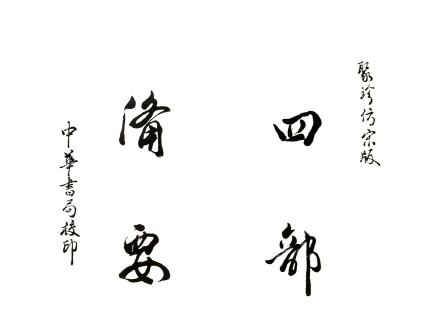 聚珍仿宋版
四部
備要
中華書局校印